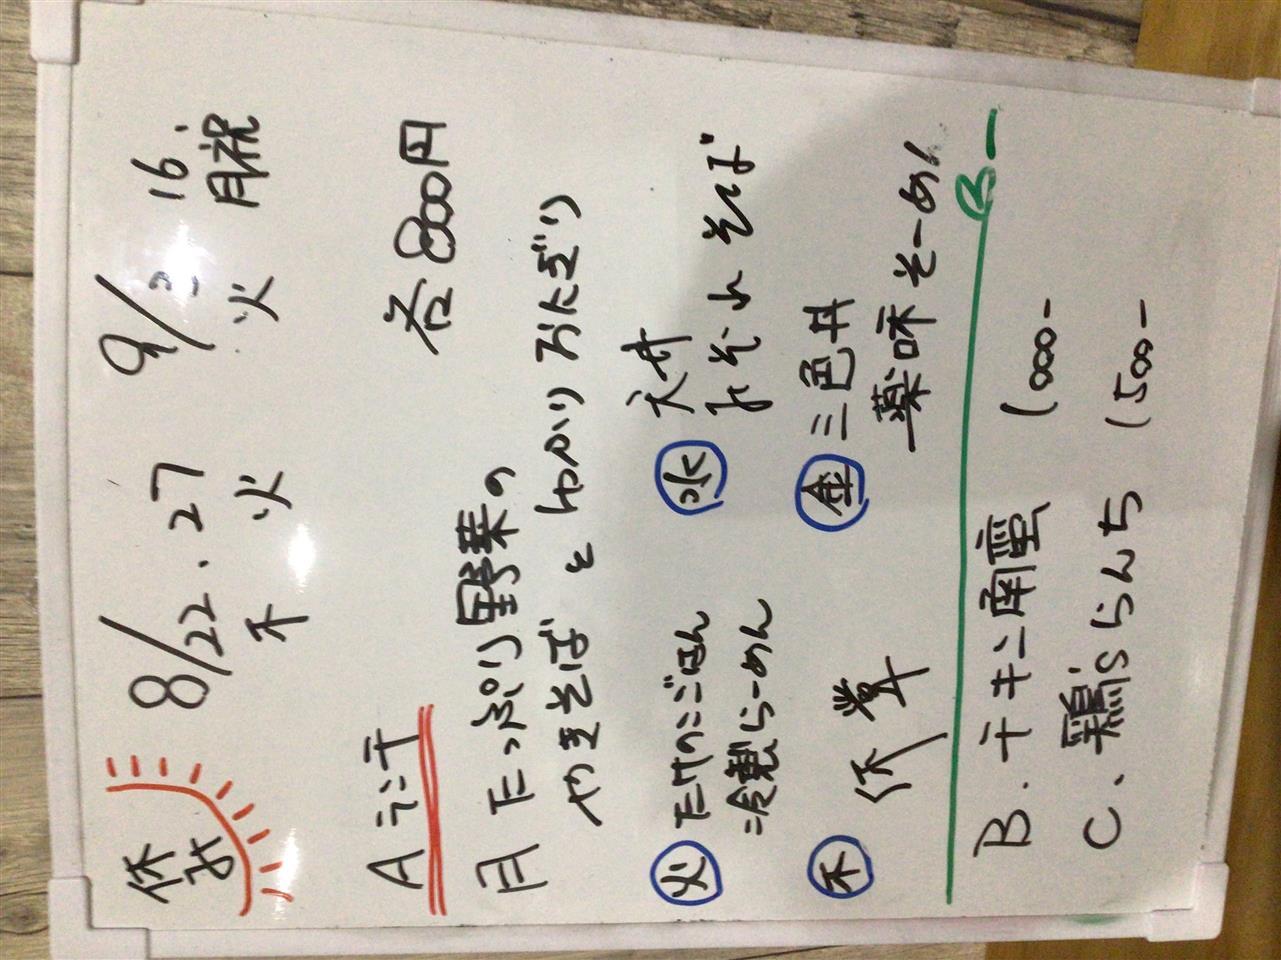 休み
8/22.27 9/3 16.
木 火 火 月祝
Aランチ 各800円
月 たっぷり野菜の
やきそば と ゆかりおにぎり
火 たけのこごはん
冷製らーめん
水 天丼
おろしそば
木 休業
金 三色丼
薬味そーめん
B.チキン南蛮 1000-
C.鶏'sらんち 1500-